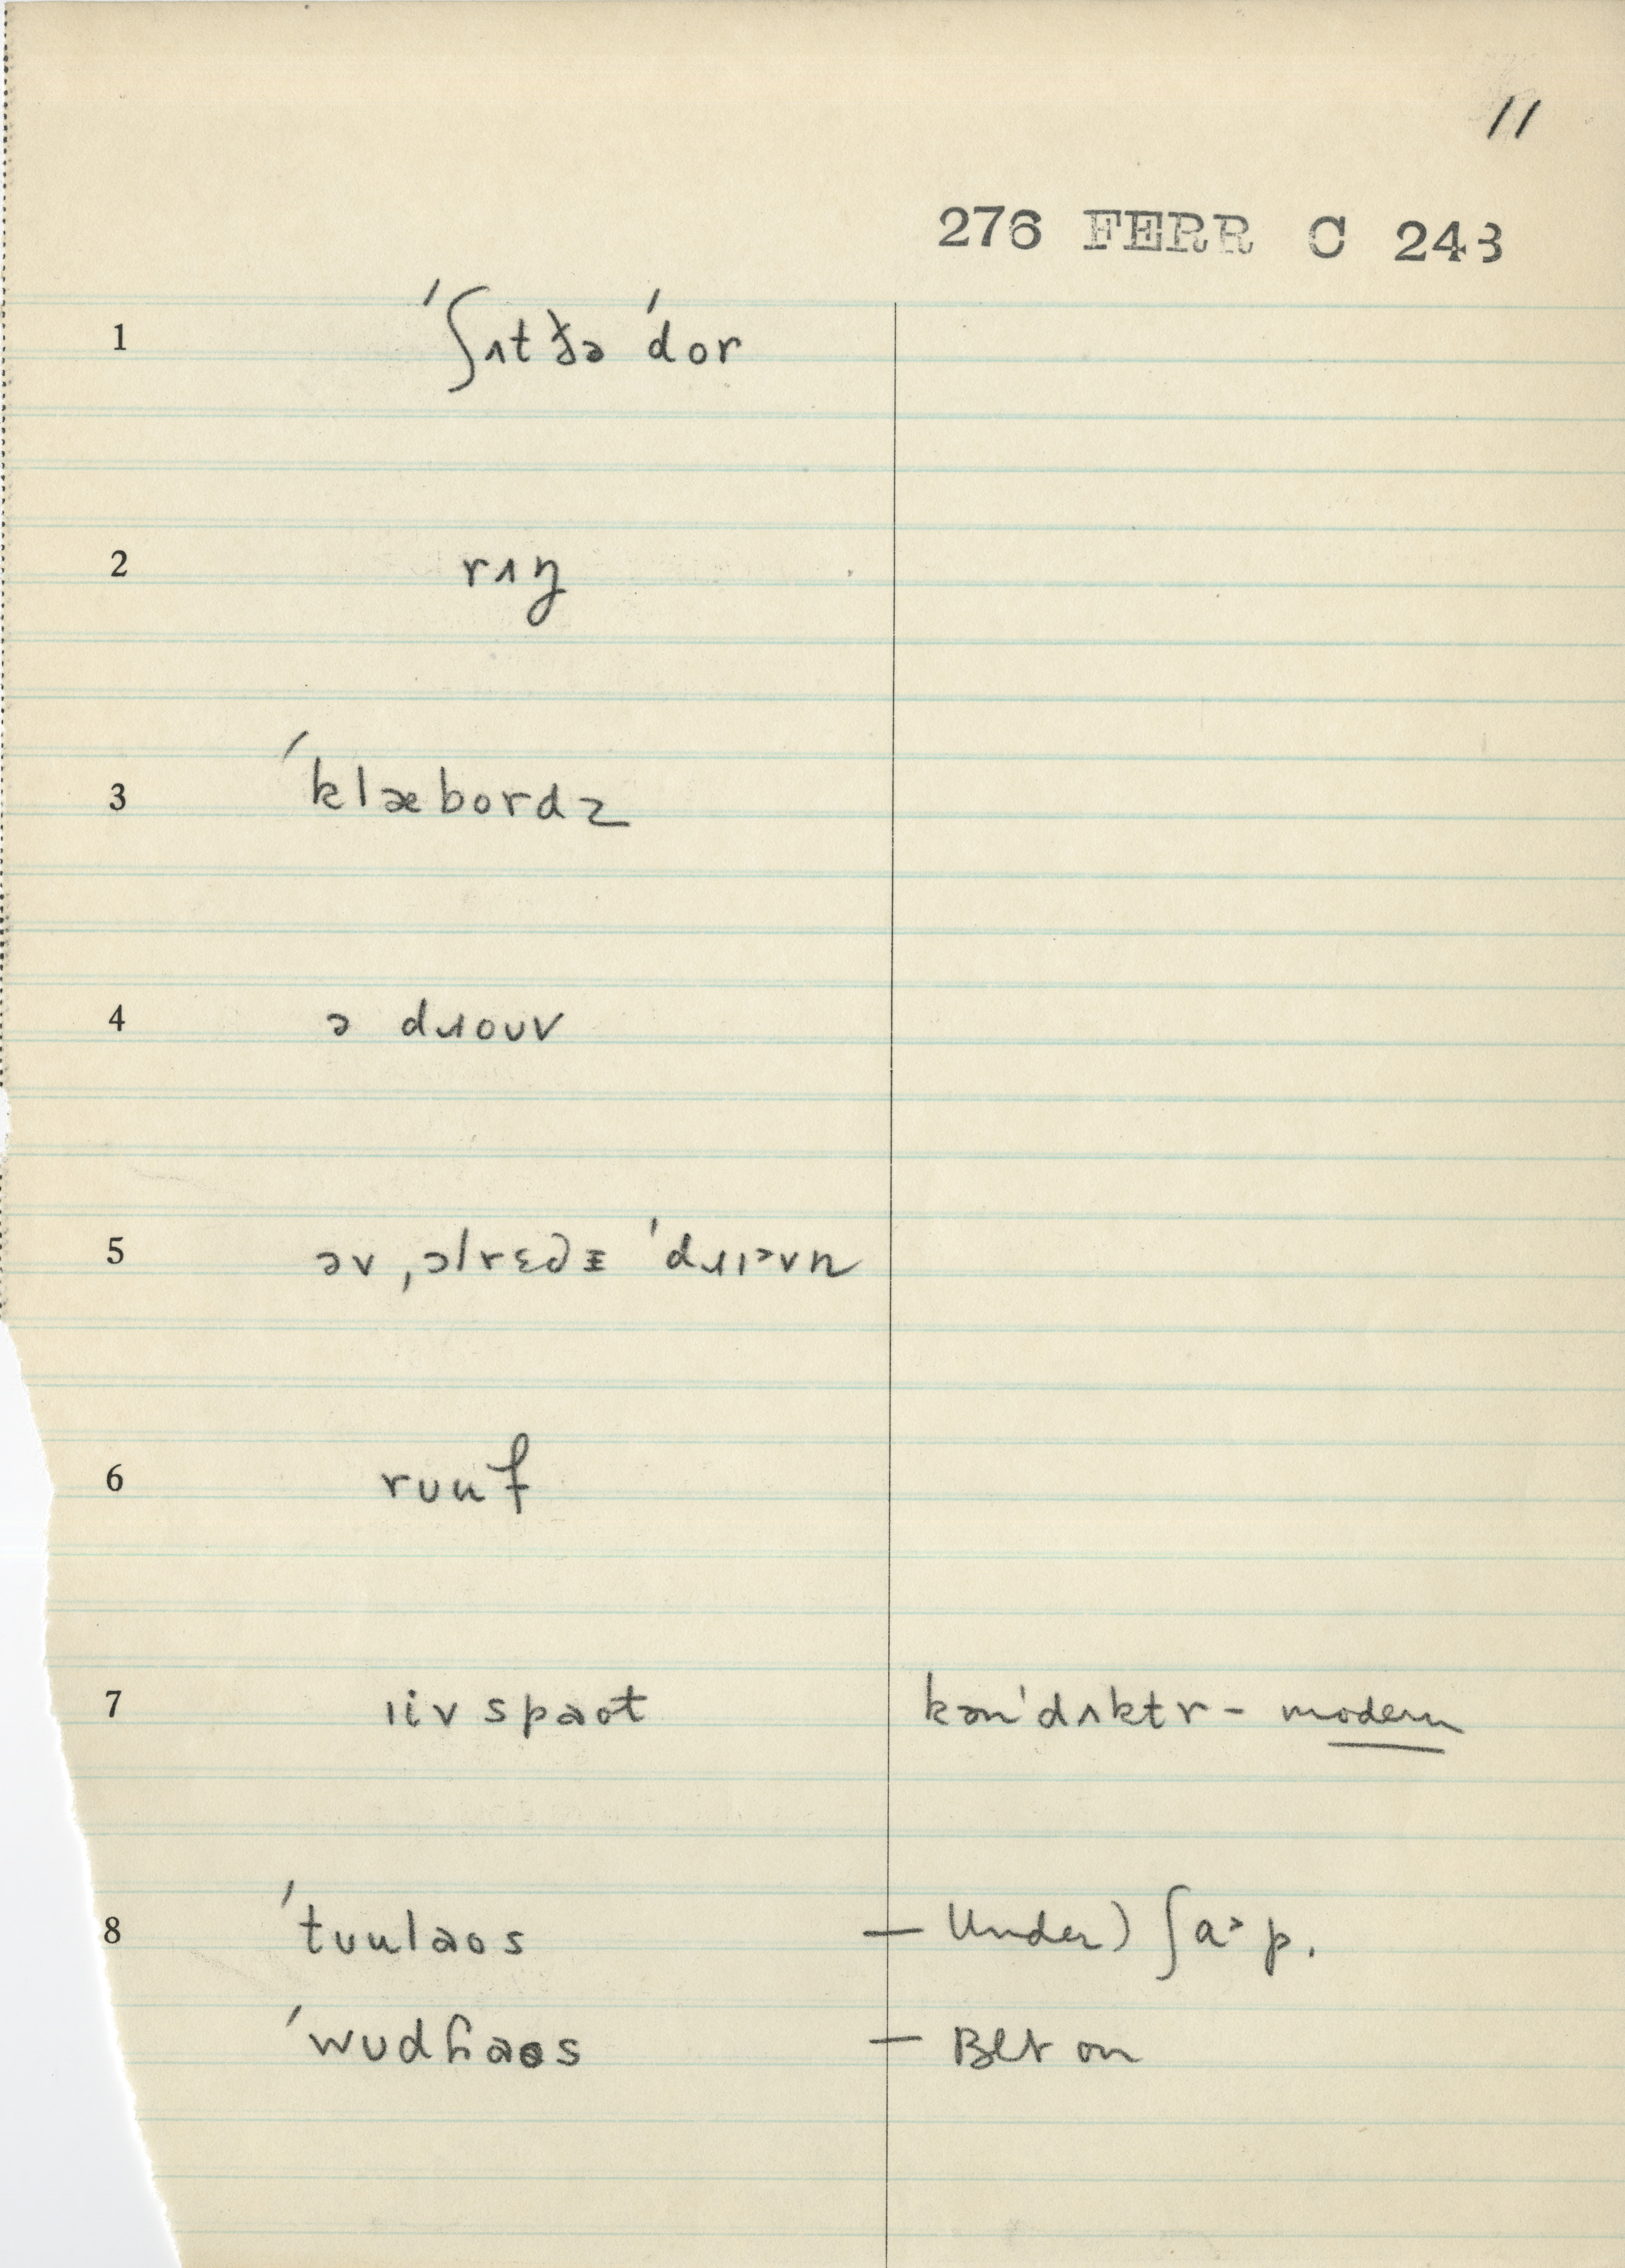 11
276 FERR C 243
1 ˈʃɪt ðə ˈdor
2 rɪŋ
3 ˈklæbordz
4 ə dɹouv
5 əv ˌɔlrɛdɪ ˈdɹɪəvn
6 rʊuf
7 iiv spaot kənˈdʌktr - modern
8 ˈtuulaos — Under) ʃa˃p.
ˈwʊdhaos —